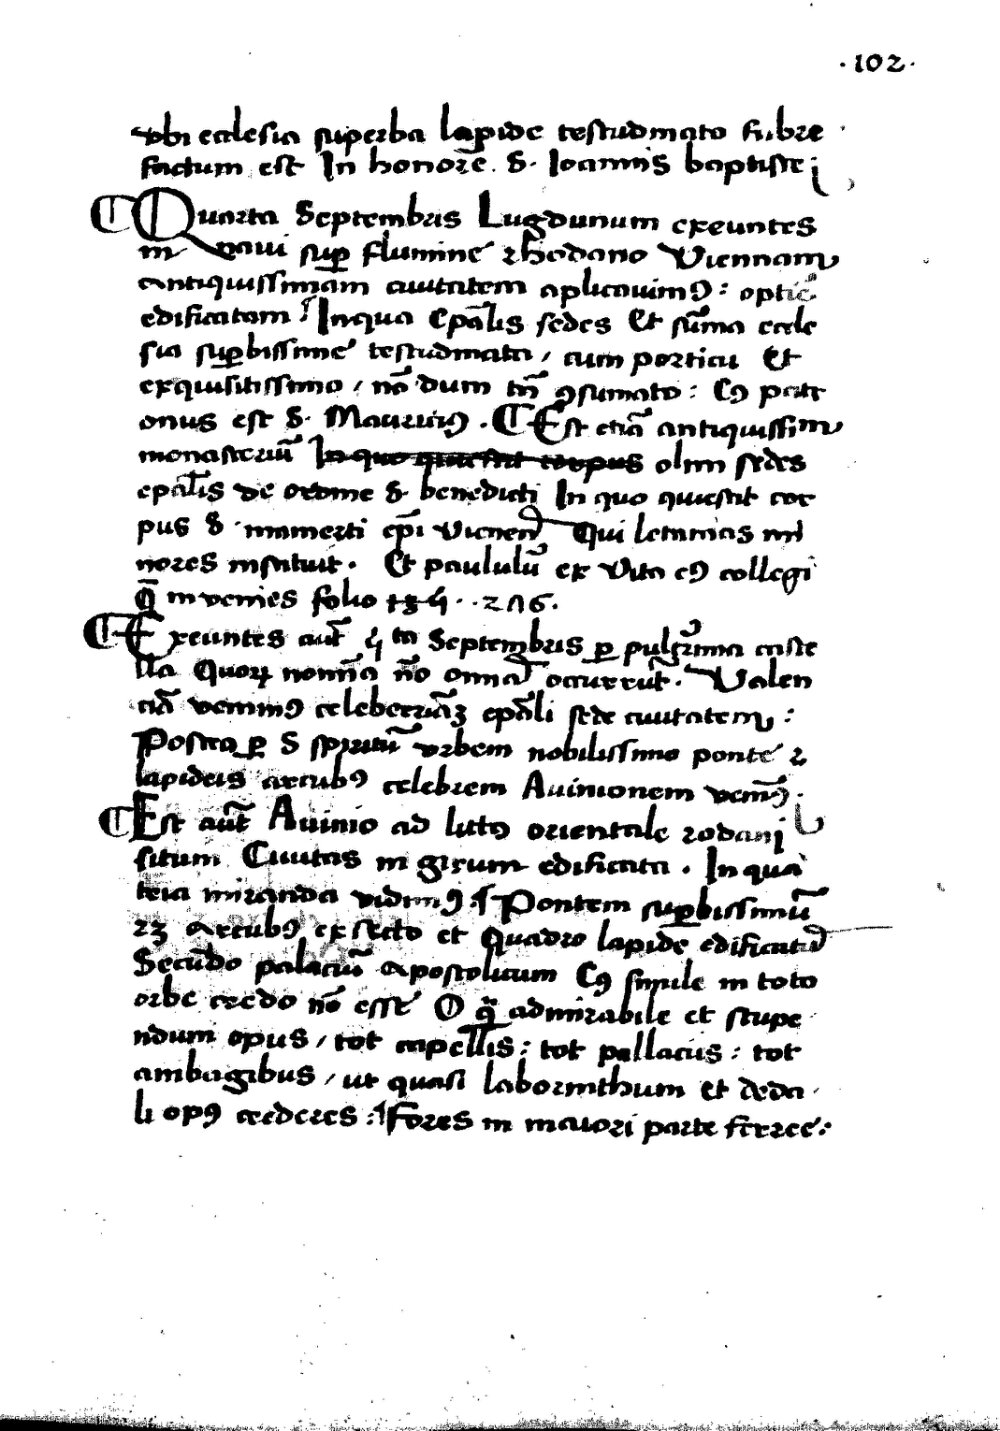 ·102·
vbi ecclesia superba lapide testudinato fabre
factum est In honore S. Ioannis baptiste
Quarta Septembris Lugdunum exeuntes
in naui sup flumine rhodano Viennam
antiquissimam ciuitatem aplicauimꝰ : optie
edificatam Inqua epãlis sedes Et sũma eccle
sia supbissime testudinata / cum porticu Et
exquisitissimo / nõ dum tñ ꝯsumato : Cꝰ patr
onus est S. Mauriciꝰ . Est etiã antiquissim
monasteriũ In quo quiescit corpus olim sedes
epãlis de ordine S. benedicti In quo quiescit cor
pus S. mamerti epi viennen Qui letanias mi
nores instituit . Et paululũ ex Vita eꝰ collegi
q̃ inuenies folio 286.
Exeuntes aut̃ 4 ta Septembris p pulcrima caste
lla Quoꝝ nomina nõ omnia occurrũt . Valen
ciã venimꝰ celeberriãꝫ epãli sede ciuitatem :
Postea p S spiritũ vrbem nobilissimo ponte 2
lapideis arcubꝰ celebrem Auinionem venimꝰ .
Est aut̃ Auinio ad littꝰ orientale rodani
situm Ciuitas in girum edificata . In qua
tria miranda vidimꝰ : Pontem supbissimũ
23 arcubꝰ ex secto et quadro lapide edificatũ
Secũdo palaciũ apostolicum Cꝰ simile in toto
orbe credo nõ esse O q̃ admirabile et stupe
ndum opus / tot capellis : tot pallaciis : tot
ambagibus / ut quasi laborinthum et deda
li opꝰ crederes : Fores in maiori parte ferree :